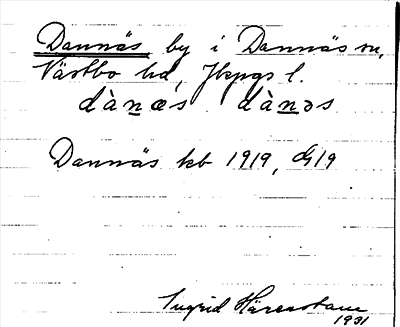 Dannäs by i Dannäs sn,
Västbo hd, Jkpgs l.
dànæs dànəs
Dannäs kb 1919, G19
Ingrid Härenstam
1931